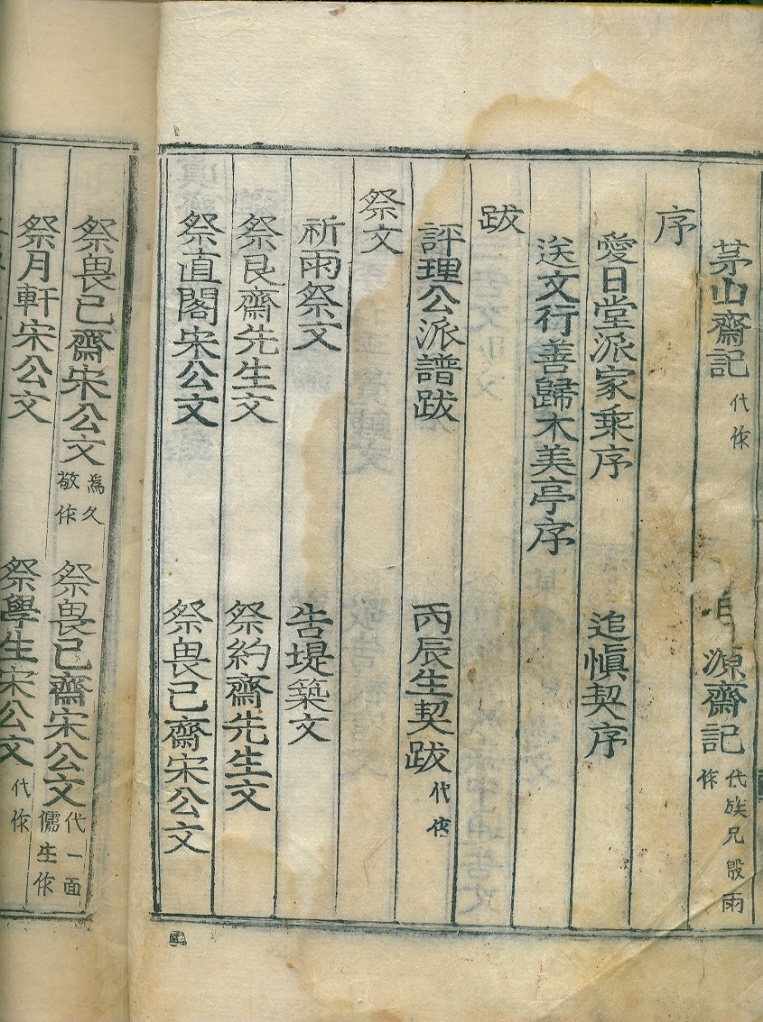 茅山齋記 代作 源齋記 代族兄殷雨作
序
愛日堂派家乘序 追愼契序
送文行善歸木美亭序
跋
評理公派譜跋 丙辰生契跋 代作
祭文
祈雨祭文 告堤築文
祭艮齋先生文 祭約齋先生文
祭直閣宋公文 祭畏己齋宋公文
祭畏己齋宋公文 爲久敬作 祭畏己齋宋公文 代一面儒生作
祭月軒宋公文 祭學生宋公文 代作